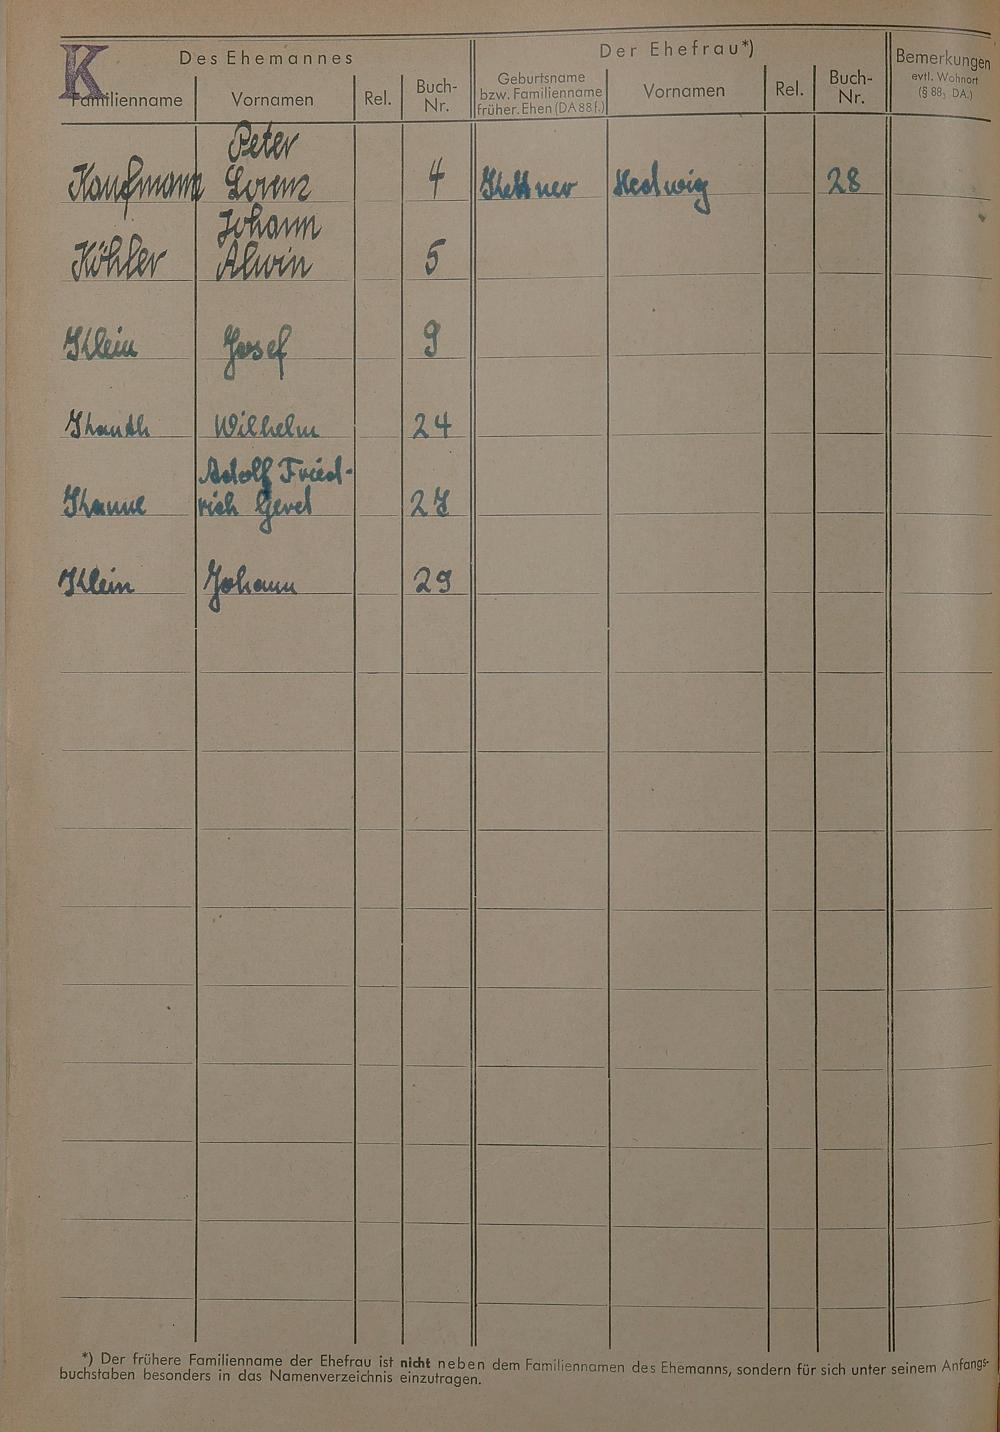 K
Des Ehemannes
Der Ehefrau*)
Bemerkungen
evtl. Wohnort
(§ 88, DA.)
Familienname
Vornamen
Rel.
Buch-
Nr.
Geburtsname
bzw. Familienname
früher. Ehen (DA 88 f.)
Vornamen
Rel.
Buch-
Nr.
Peter
Kaufmann Lorenz 4 Kettner Hedwig 28
Johann
Köhler Alwin 5
Klein Josef 9
Wilhelm 24
Adolf Fried-
rich Gerd 27
Klein Johann 29
*) Der frühere Familienname der Ehefrau ist nicht neben dem Familiennamen des Ehemanns, sondern für sich unter seinem Anfangs-
buchstaben besonders in das Namenverzeichnis einzutragen.